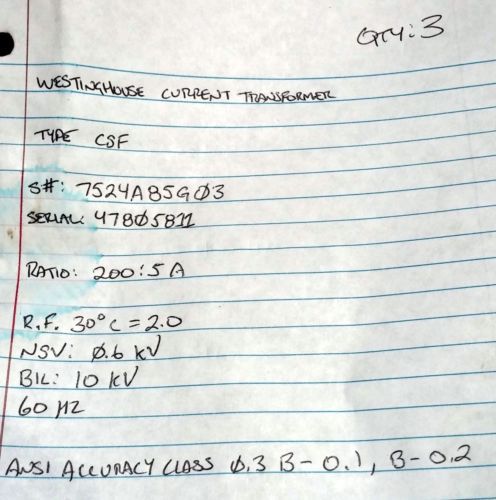 QTY: 3
WESTINGHOUSE CURRENT TRANSFORMER
TYPE CSF
S#: 7524A85G03
SERIAL: 47805811
RATIO: 200:5 A
R.F. 30°C = 2.0
NSV: 0.6 kV
BIL: 10 kV
60 HZ
ANSI ACCURACY CLASS 0.3 B-0.1, B-0.2